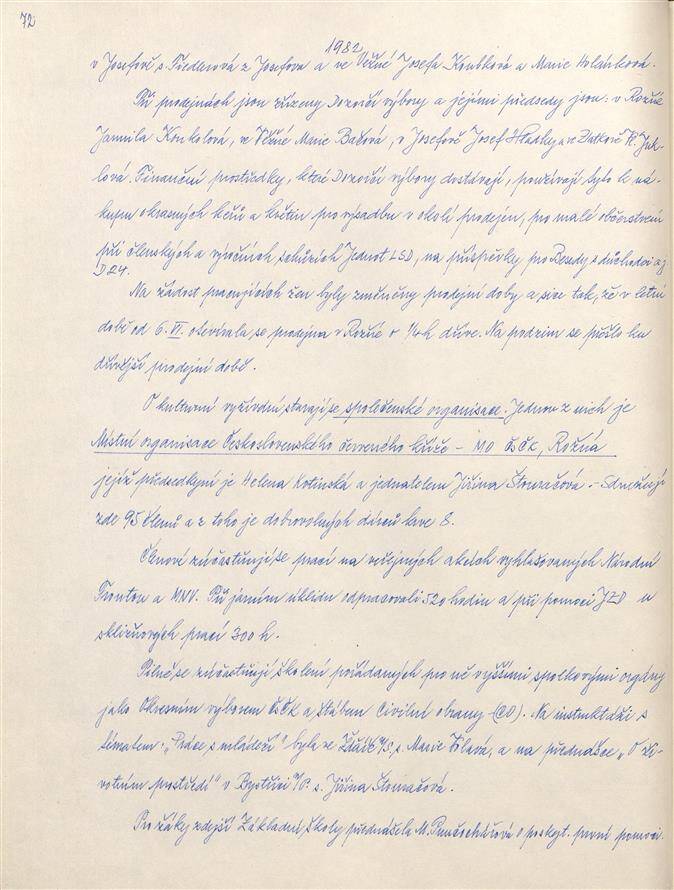 72
1982
v Josefově s. Fiedlerová z Josefova a ve Věžné Josefa Koubková a Marie Holánková.
Při prodejnách jsou zřízeny Dozorčí výbory a jejími předsedy jsou: v Rožné
Jarmila Koukolová, ve Věžné Marie Bačová, v Josefově Josef Hladký a ve Zlatkově
lová. Finanční prostředky, které Dozorčí výbory dostávají, používají tyto k ná-
kupu okrasných keřů a květin pro výsadbu v okolí prodejen, pro malé občerstvení
při členských a výročních schůzích Jednot LSD, na příspěvky pro Besedy s důchodci aj
D24.
Na žádost pracujících žen byly změněny prodejní doby a sice tak, že v letní
době od 6. VI. otevírala se prodejna v Rožné o 1/4 h dříve. Na podzim se přešlo ku
dřívější prodejní době.
O kulturní vyžívání starají se společenské organisace. Jednou z nich je
Místní organisace Československého červeného kříže - MO ČSČK, Rožná
jejíž předsedkyní je Helena Kotinská a jednatelem Jiřina Štouračová. - Sdružují
zde 95 členů a z toho je dobrovolných dárců krve 8.
Členové zúčastňují se prací na veřejných akcích vyhlašovaných Národní
Frontou a MNV. Při jarním úklidu odpracovali 520 hodin a při pomoci JZD u
sklizňových prací 300 h.
Pilně se zúčastňují školení pořádaných pro ně vyššími spolkovými orgány
jako Okresním výborem ČSČK a štábem Civilní obrany (CO). Na instruktáži s
tématem: "Práce s mládeží" byla ve Žďáře n/S. s. Marie Bílavá, a na přednášce "O ži-
votním prostředí" v Bystřici n/P. s. Jiřina Štouračová.
Pro žáky zdejší Základní školy přednášela M. Punčochářová o poskyt. první pomoci.